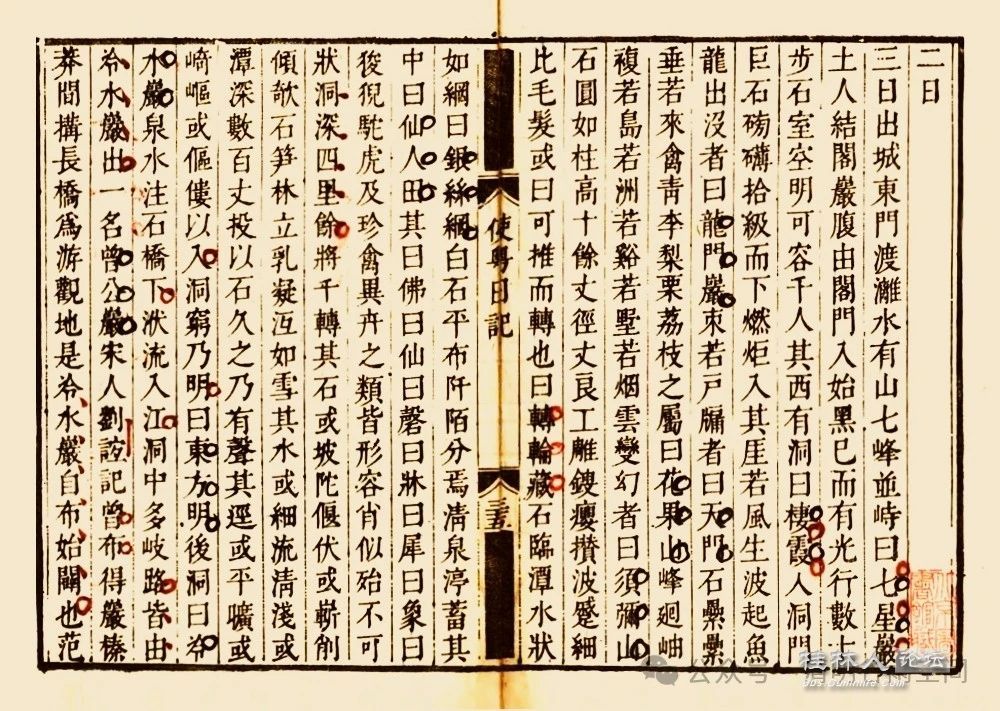 二日
三日出城東門渡灕水有山七峰並峙曰七星巖
土人結閣巖腹由閣門入始黑巳而有光行數十
步石室空明可容千人其西有洞曰棲霞入洞門
巨石磅礴拾級而下燃炬入其厓若風生波起魚
龍出沒者曰龍門巖束若戸牖者曰天門石纍纍
垂若來禽青李梨栗荔枝之屬曰花果山峰廻岫
複若島若洲若谿若墅若烟雲變幻者曰須彌山
石圓如柱高十餘丈徑丈良工雕鎪癭攅波蹙細
比毛髮或曰可推而轉也曰轉輪藏石臨潭水狀
使粤日記
三五
如綱曰銀絲綱白石平布阡陌分焉清泉渟蓄其
中曰仙人田其曰佛曰仙曰磬曰牀曰犀曰象曰
狻猊駝虎及珍禽異卉之類皆形容肖似殆不可
狀洞深四里餘將千轉其石或坡陀偃伏或嶄削
傾欹石笋林立乳凝沍如雪其水或細流清淺或
潭深數百丈投以石久之乃有聲其逕或平曠或
崎嶇或傴僂以入洞窮乃明曰東方明後洞曰冷
水巖泉水注石橋下洑流入江洞中多岐路皆由
冷水巖出一名曾公巖宋人劉誼記曾布得巖榛
莽間搆長橋爲游觀地是冷水巖自布始闢也范
桂林人论坛
公众号